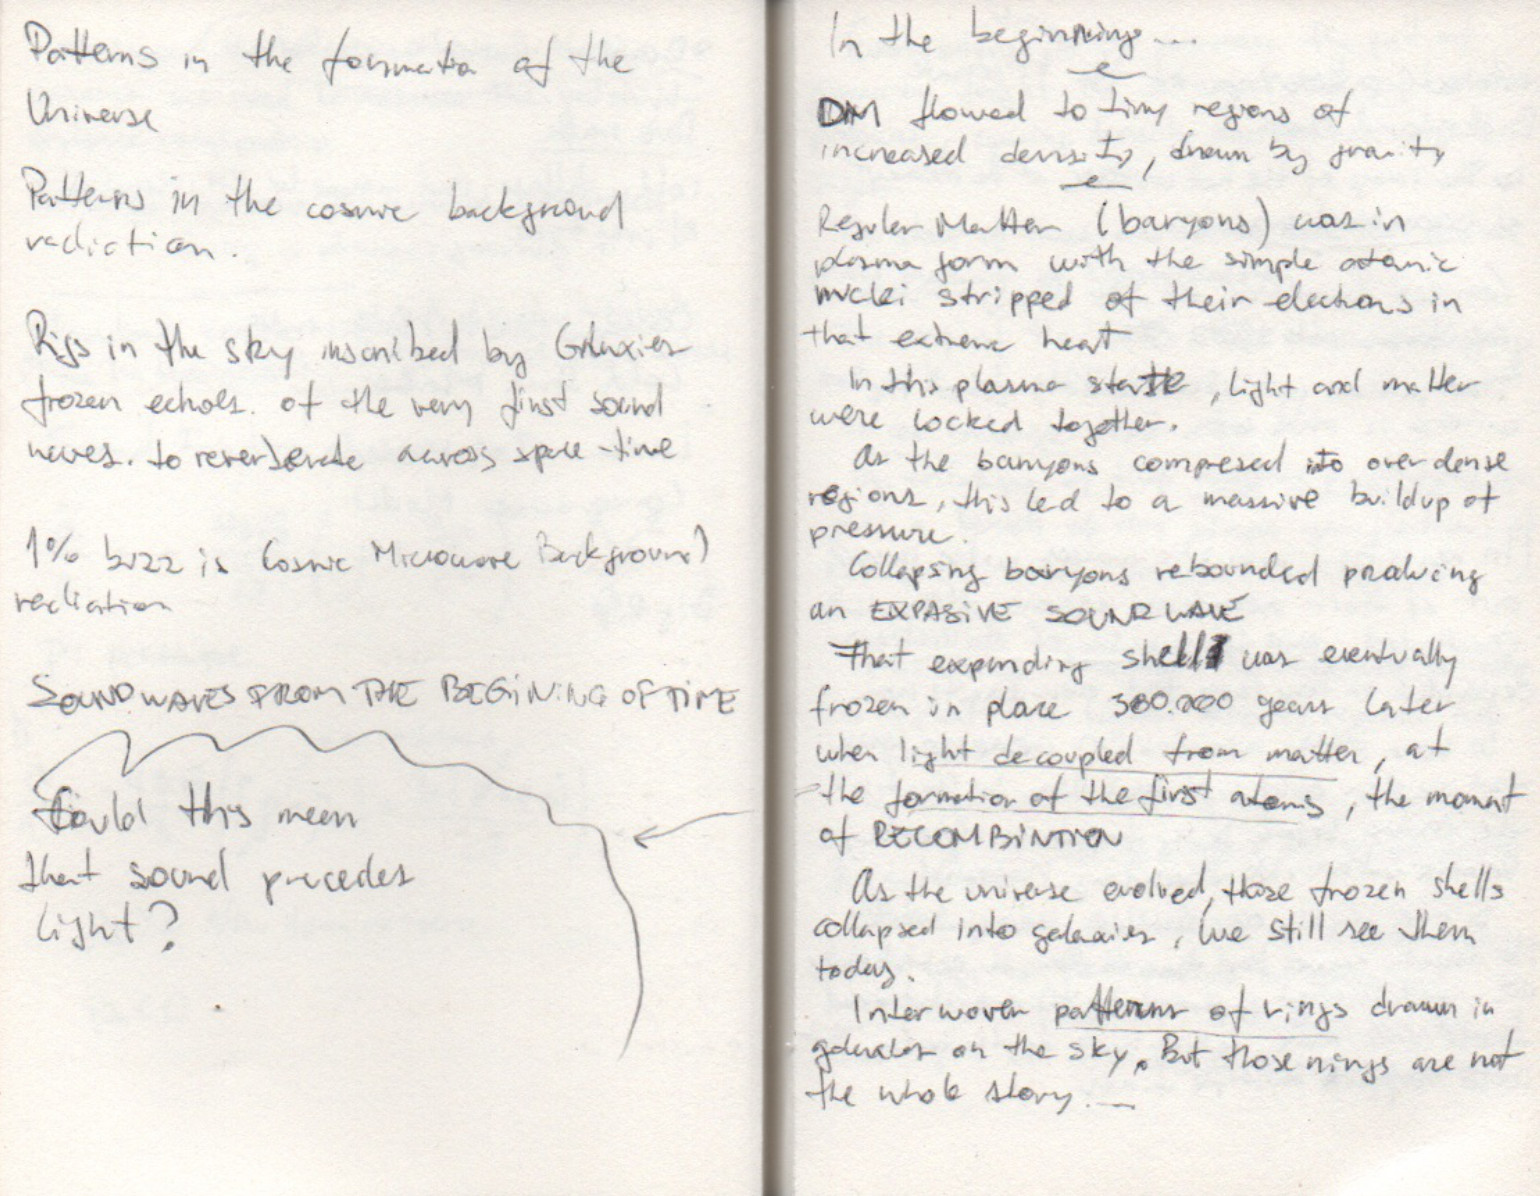 Patterns in the formation of the
Universe
Patterns in the cosmic background
radiation.
Rigs in the sky inscribed by Galaxies
frozen echoes. of the very first sound
waves. to reverberate across space-time
1% buzz is Cosmic Microwave Background)
radiation
SOUND WAVES FROM THE BEGINING OF TIME
Could this mean
that sound precedes
light?
In the beginning...
DM flowed to tiny regions of
increased density, drawn by gravity
Regular Matter (baryons) was in
plasma form with the simple atomic
nuclei stripped of their electrons in
that extreme heat
In this plasma state, light and matter
were locked together.
As the baryons compresed into overdense
regions, this led to a massive buildup of
pressure.
Collapsing baryons rebounded producing
an EXPASIVE SOUND WAVE
That expanding shell was eventually
frozen in place 380.000 years later
when light decoupled from matter, at
the formation of the first atoms, the moment
of RECOMBINTION
As the universe evolved, those frozen shells
collapsed into galaxies, we still see them
today.
Interwoven patterns of rings drawn in
galaxies on the sky. But those rings are not
the whole story...